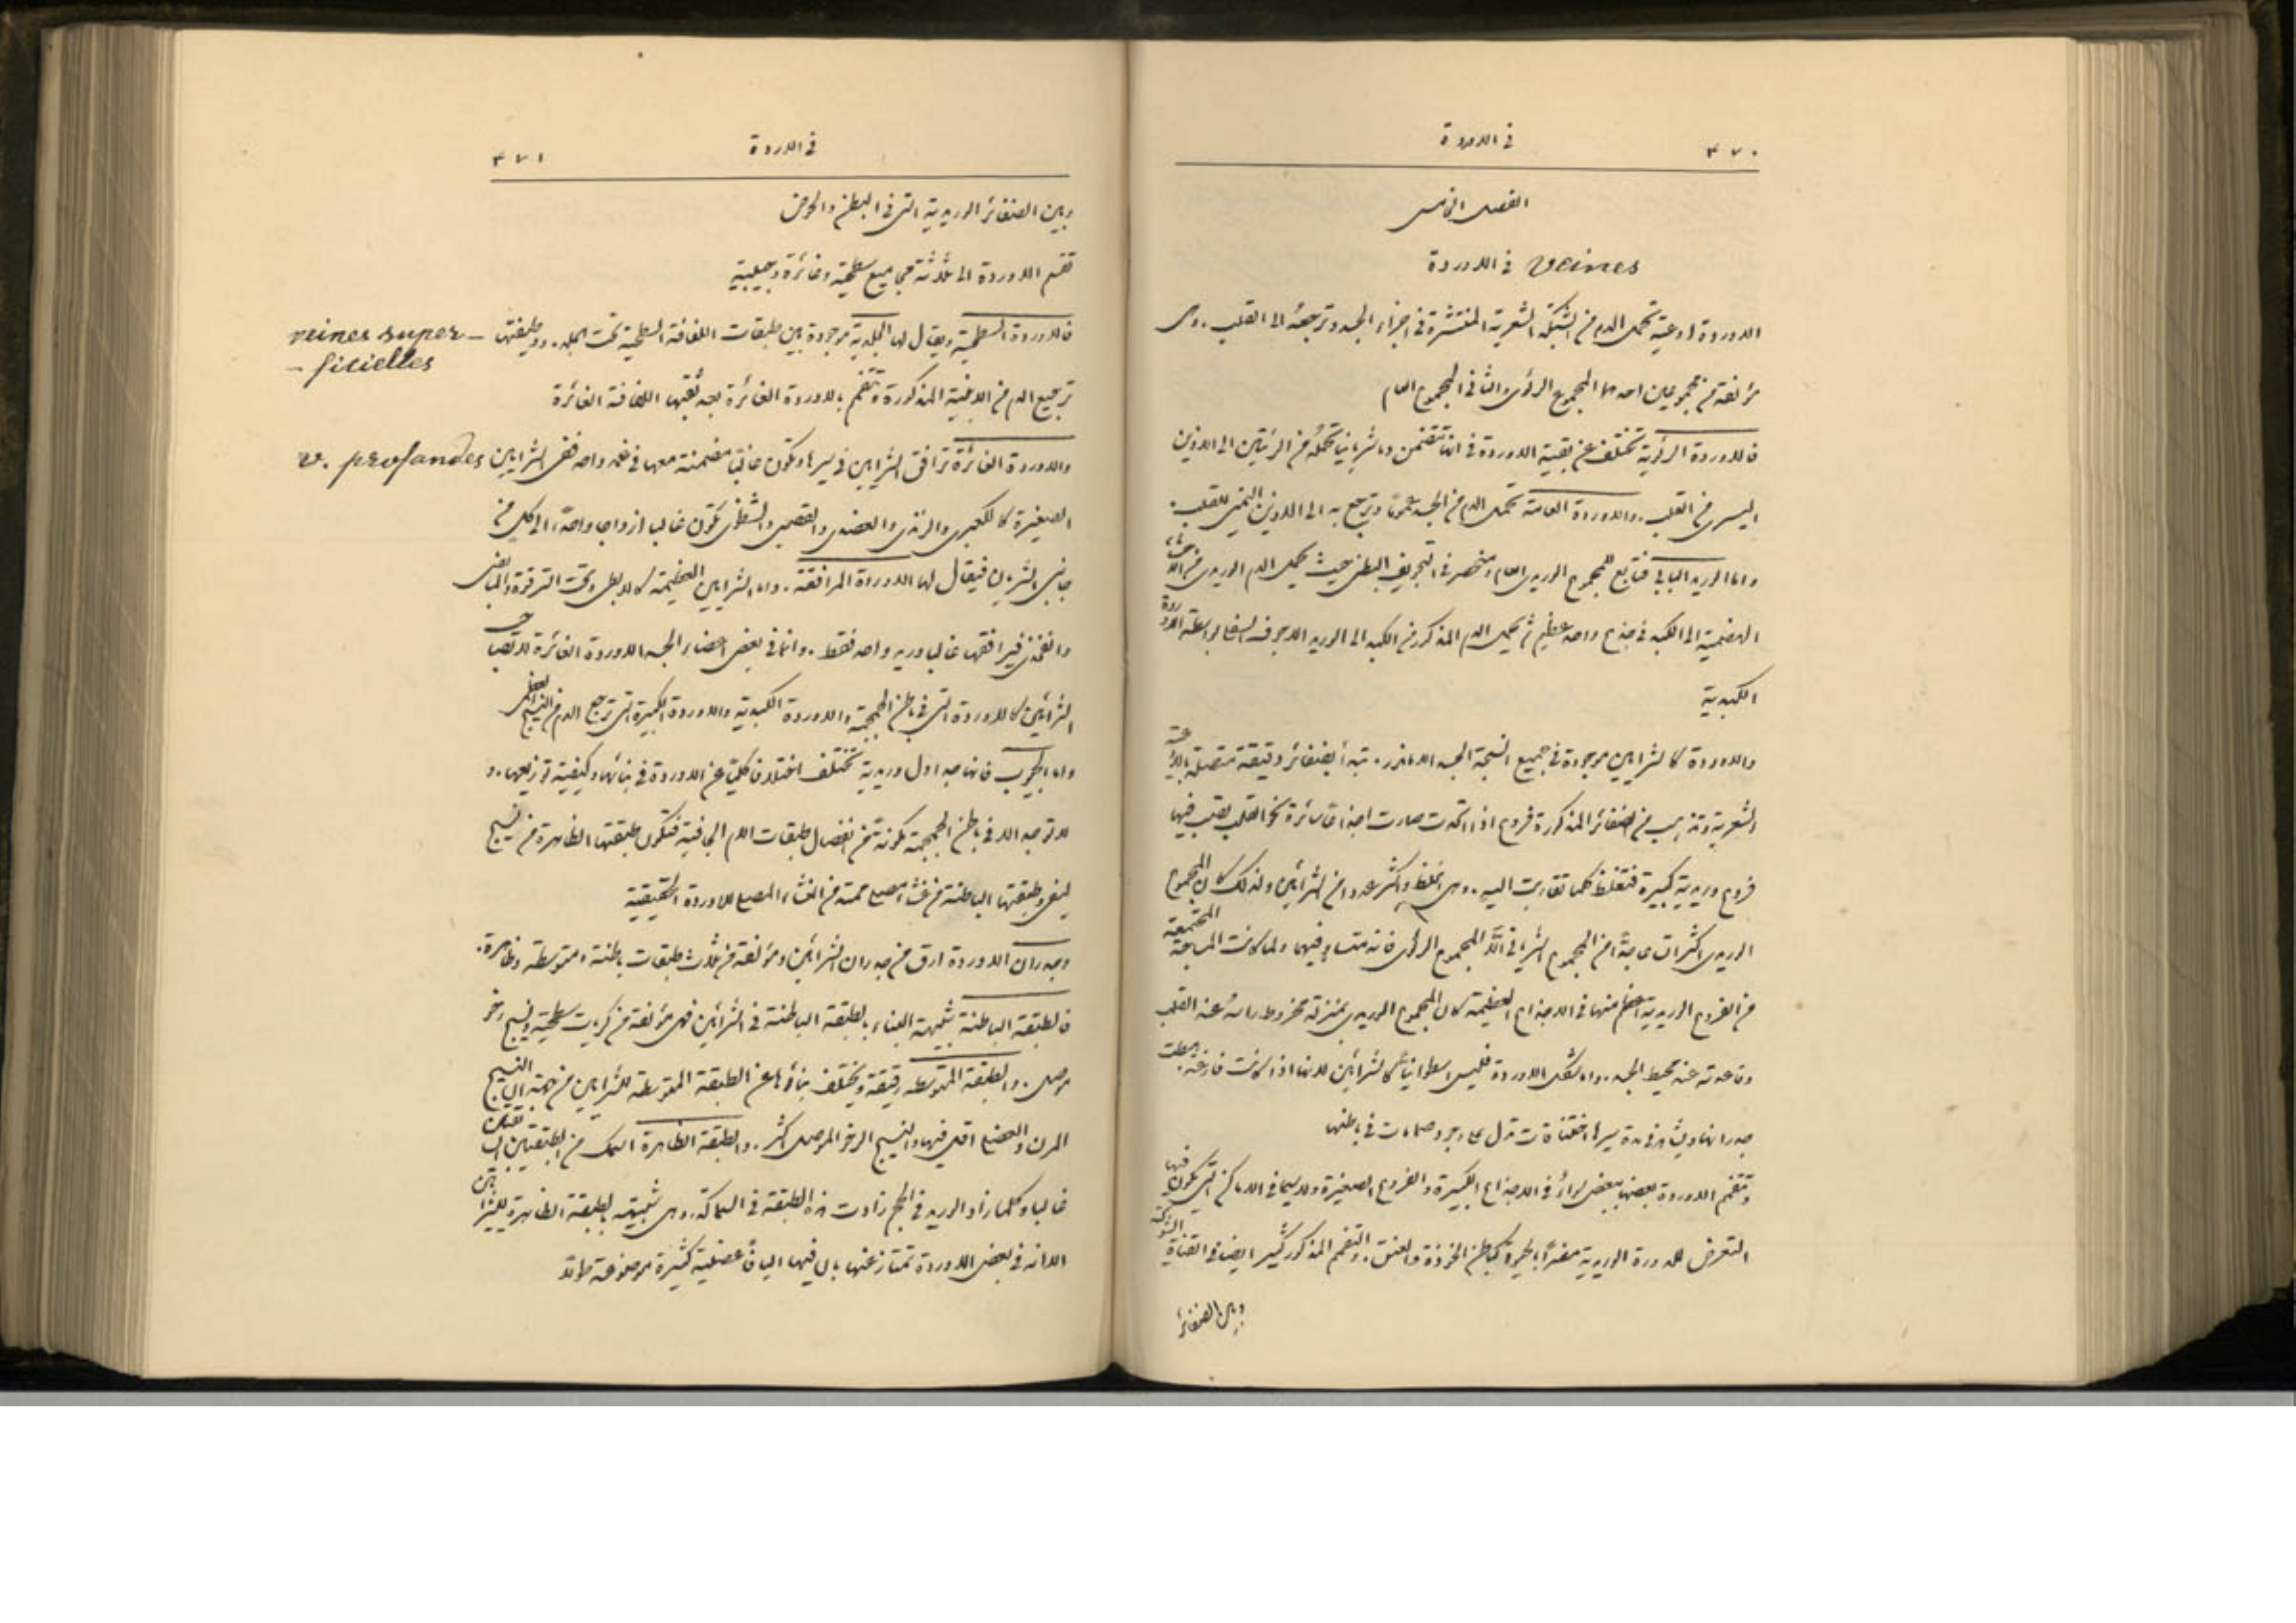 ٣٧٠
في الاوردة
الفصل الخامس
في الاوردة Veines
الاوردة اوعية تحمل الدم من الشبكة الشعرية المنتشرة في اجزاء الجسد وترجعه الى القلب. وهي
مؤلفة من مجموعين احدهما المجموع الرئوي والثاني المجموع العام
فالاوردة الرئوية تختلف عن بقية الاوردة في انها تتضمن دما شريانيا تحمله من الرئتين الى الاذين
اليسرى من القلب. والاوردة العامة تحمل الدم من الجسد عموما وترجع به الى الاذين اليمنى للقلب.
واما الوريد البابي فتابع للمجموع الوريدي العام ومنحصر في التجويف البطني حيث يحمل الدم الوريدي من الاحشاء
الهضمية الى الكبد في جذع واحد عظيم ثم يحمل الدم المذكور من الكبد الى الوريد الاجوف السفلي بواسطة الاوردة
الكبدية
والاوردة كالشرايين موجودة في جميع انسجة الجسد الا ما ندر. تبتدأ بضفائر دقيقة متصلة بالاوعية
الشعرية وتذهب من الضفائر المذكورة فروع اذا اتحدت صارت اجذاعا سائرة نحو القلب يصب فيها
فروع وريدية كبيرة فتغلظ كلما تقاربت اليه. وهي اغلظ واكثر عددا من الشرايين ولذلك كان المجموع
الوريدي اكثر اتساعا من المجموع الشرياني الا المجموع الرئوي فانه متساو فيهما ولما كانت المساحة المجتمعة
من الفروع الوريدية اعظم منها في الاجذاع العظيمة كان المجموع الوريدي بمنزلة مخروط راسه عند القلب
وقاعدته عند محيط الجسد. واما شكل الاوردة فليس اسطوانيا كالشرايين لانها اذا كانت فارغة هبطت
جدرانها ويشاهد في مدة سيرها اختناقات تدل على وجود صمامات في باطنها
وتتفمم الاوردة بعضها ببعض سواء في الاجذاع الكبيرة والفروع الصغيرة ولاسيما في الاماكن التي يكون فيها
التعرض للدورة الوريدية مضرا بالحيوة كباطن الخوذة والعنق. والتفمم المذكور كثير ايضا في القناة الشوكية
وبين الضفائر
٣٧١
في الاوردة
وبين الضفائر الوريدية التي في البطن والحوض
تقسم الاوردة الى ثلاثة مجاميع سطحية وغائرة وجيبية
فالاوردة السطحية ويقال لها الجلدية موجودة بين طبقات اللفافة السطحية تحت الجلد. ووظيفتها
veines super-
-ficielles
ترجيع الدم من الابنية المذكورة وتتفمم بالاوردة الغائرة بعد ثقبها اللفافة الغائرة
والاوردة الغائرة ترافق الشرايين في سيرها وتكون غالبا متضمنة معها في غمد واحد ففي الشرايين
v. profondes
الصغيرة كالكعبري والزندي والعضدي والقصبي والشظوي تكون غالبا ازواجا واحدا الى كل من
جانبي الشريان فيقال لها الاوردة المرافقة. واما الشرايين العظيمة كالابطي وتحت الترقوة والمابضي
والفخذي فيرافقها غالبا وريد واحد فقط. وانما في بعض اعضاء الجسد الاوردة الغائرة لا تصاحب
الشرايين كالاوردة التي في باطن الجمجمة والاوردة الكبدية والاوردة الكبيرة التي ترجع الدم من النسيج العظمي
واما الجيوب فانها جداول وريدية تختلف اختلافا كليا عن الاوردة في بنائها وكيفية توزيعها. و
لا توجد الا في باطن الجمجمة مكونة من انفصال طبقات الام الجافية فتكون طبقتها الظاهرة من نسيج
ليفي وطبقتها الباطنة من غشاء مصلي ممتد من الغشاء المصلي للاوردة الحقيقية
وجدران الاوردة ارق من جدران الشرايين ومؤلفة من ثلاث طبقات باطنة ومتوسطة وظاهرة.
فالطبقة الباطنة شبيهة البناء بالطبقة الباطنة في الشرايين فهي مؤلفة من كريات سطحية ونسيج رخو
موصل. والطبقة المتوسطة رقيقة ويختلف بناؤها عن الطبقة المتوسطة للشرايين من جهة ان النسيج
المرن والعضلي اقل فيها والنسيج الرخو الموصل اكثر. والطبقة الظاهرة اسمك من الطبقتين السابقتين
غالبا وكلما زاد الوريد في الحجم زادت هذه الطبقة في السماكة. وهي شبيهة بالطبقة الظاهرة للشرايين
الا انه في بعض الاوردة تمتاز عنها بان فيها اليافا عضلية كثيرة موضوعة طولا